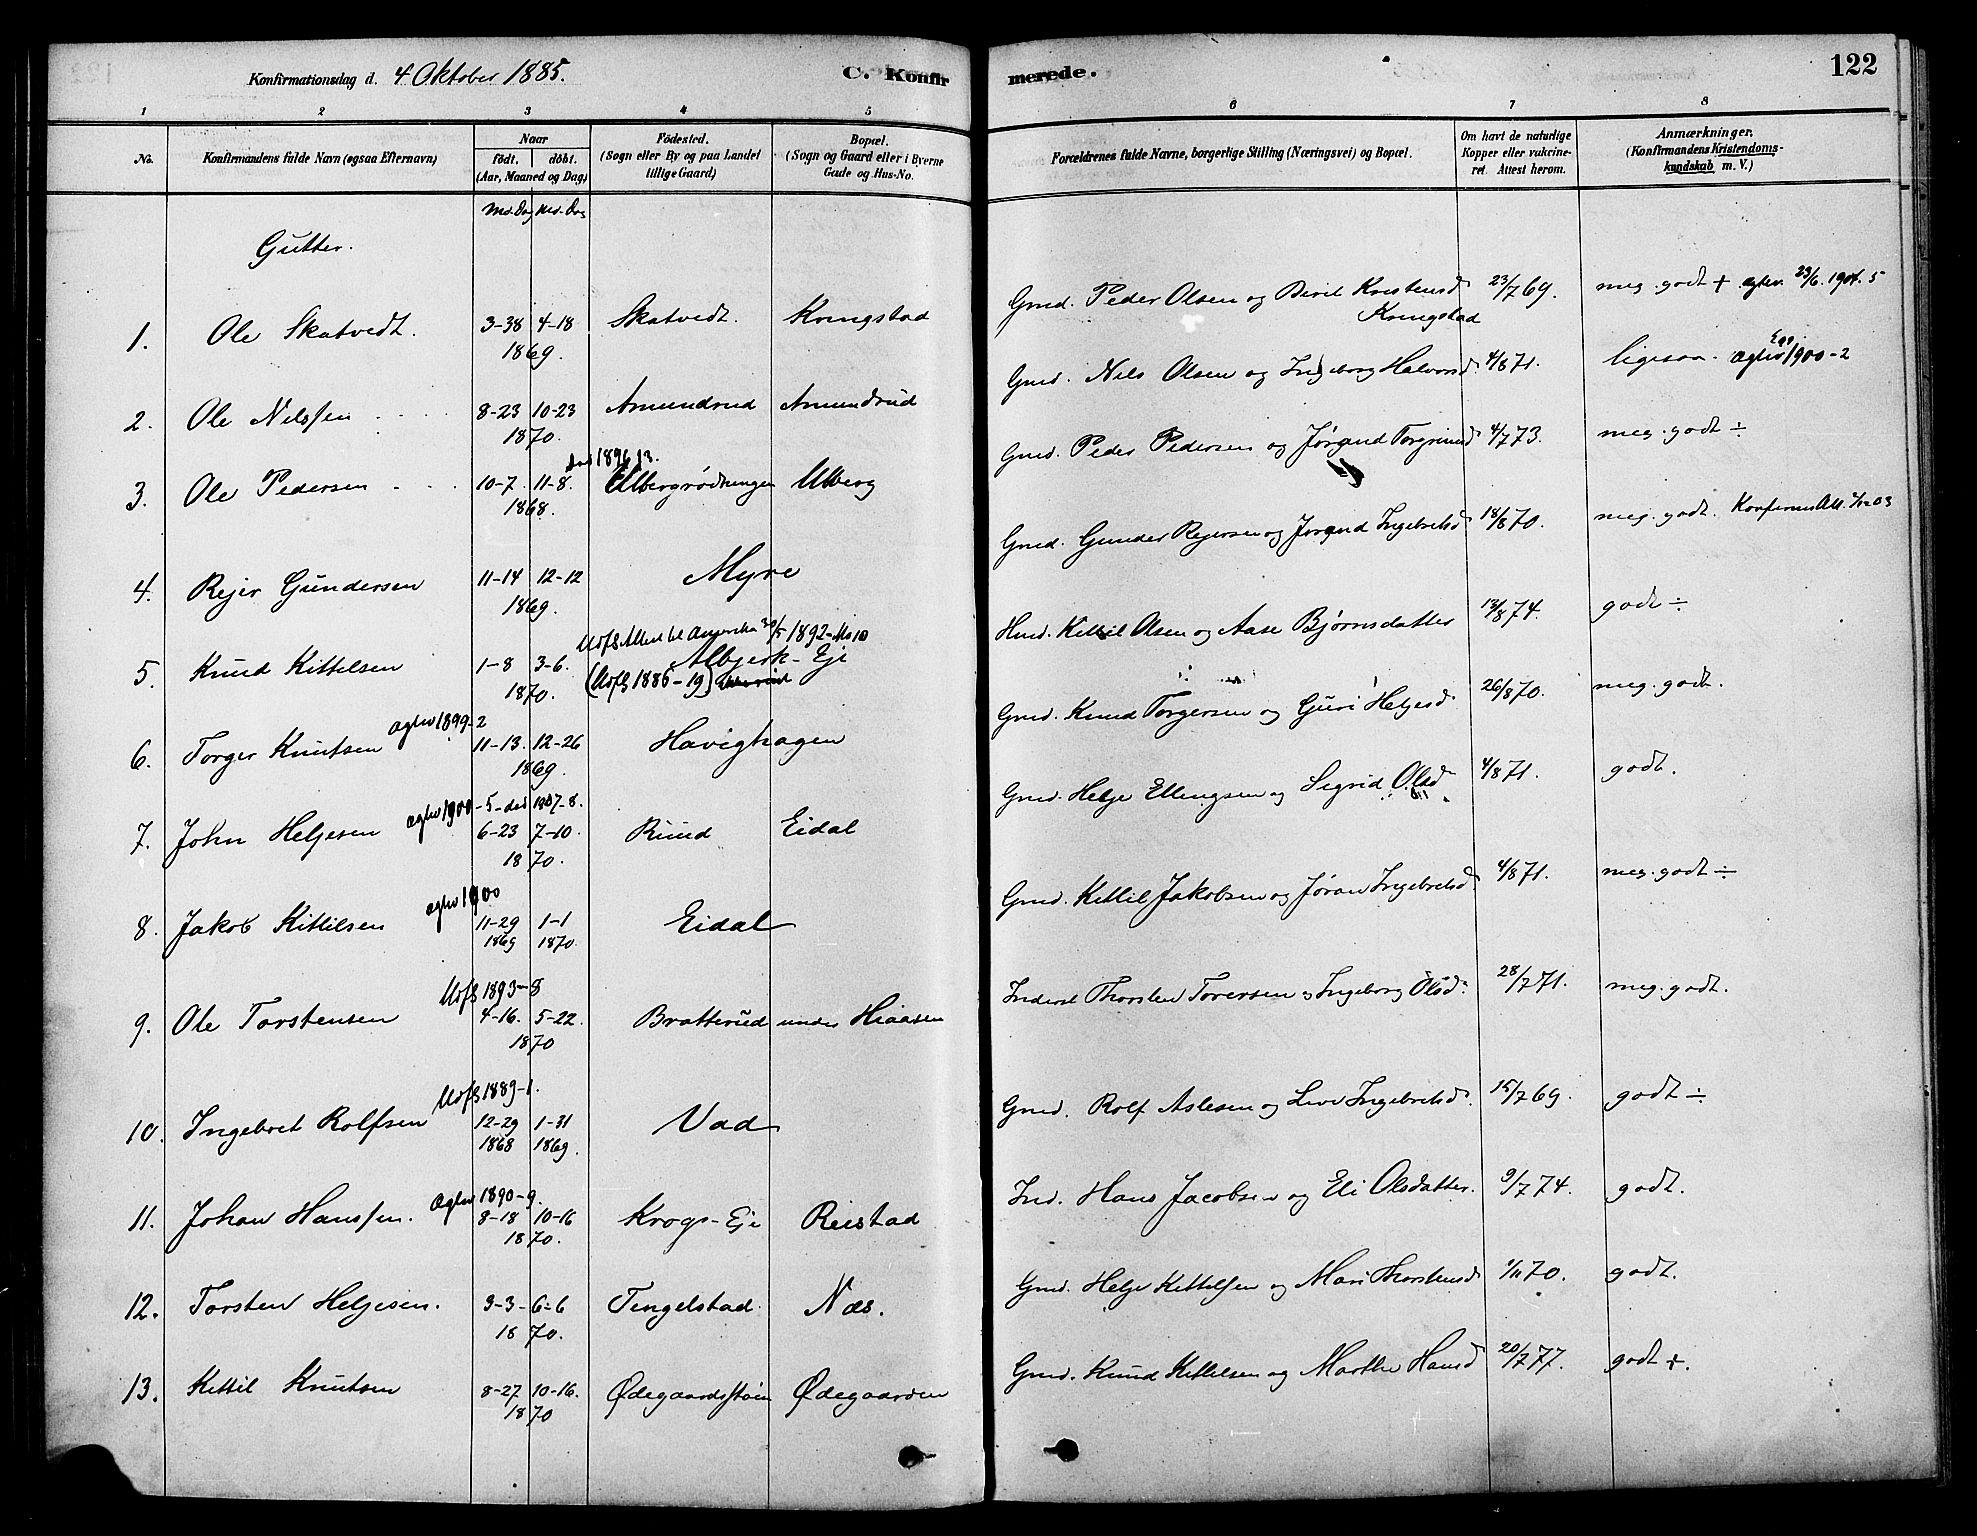 Konfirmationsdag d. 4 Oktober 1885. C. Konfirmerede. 122
1 2 3 4 5 6 7 8
No. Konfirmandens fulde Navn (ogsaa Efternavn)
Naar
født. døbt.
(Aar, Maaned og Dag)
Födested.
(Sogn eller By og paa Landet
tillige Gaard)
Bopæl.
(Sogn og Gaard eller i Byerne
Gade og Hus-No.
Forældrenes fulde Navne, borgerlige Stilling (Næringsvei) og Bopæl.
Om havt de naturlige
Kopper eller vakcine-
ret. Attest herom.
Anmærkninger.
(Konfirmandens Kristendoms-
kundskab m. V.)
Md. Dag Md. Dag
Gutter.
1. Ole Skatvedt. 3-38 4-18 Skatvedt. Kringstad Gmd. Peder Olsen og Berit Kristensd 23/7 69. meg. godt + 23/6. 1904. 5
1869. Kringstad
2. Ole Nilssen 8-23 10-23 Amundrud Amundrud Gmd. Nils Olsen og Ingeborg Halvorsd. 4/8 71. ligesaa. 1900-2
1870.
3. Ole Pedersen 10-7. 11-8. Ulbergrødningen Ulberg Gmd. Peder Pedersen og Jørand Torgrimsd 4/7 73. meg. godt ÷
1868.
4. Rejer Gundersen 11-14 12-12 Myre Gmd. Gunder Rejersen og Jørand Ingebretsd 18/8 70. meg. godt.
1869.
Udfl. Attest til Amerika 30/5 1892
5. Knud Kittelsen 1-8 3-6. Albjerk-Eje Hmd. Kittil Olsen og Aase Bjørnsdatter 13/8 74. godt ÷
1870. (Udfl 1886-19)
agtev 1899-2
6. Torger Knutsen 11-13. 12-26 Havighagen Gmd. Knud Torgersen og Guri Helgesd 26/8 70. meg. godt.
1869.
agtev 1900-5
7. John Helgesen 6-23 7-10. Ruud Eidal Gmd. Helge Ellingsen og Sigrid Olsd 4/8 71. godt.
1870.
agtev 1900
8. Jakob Kittilsen 11-29 1-1 Eidal Gmd. Kittil Jakobsen og Jøran Ingebretsd. 4/8 71. meg. godt ÷
1869 1870.
Udfl 1893-8
9. Ole Torstensen 4-16. 5-22. Bratterud under Hiaasen Inderst Thorsten Toversen og Ingeborg Olsd. 28/7 71. meg. godt.
1870
Udfl 1889-1.
10. Ingebret Rolfsen 12-29 1-31 Vad Gmd. Rolf Aslesen og Livi Ingebretsd. 15/7 69. godt ÷
1868 1869.
agtev 1890-9.
11. Johan Hanssen. 8-18 10-16 Krogs-Eje Reistad Ind. Hans Jacobsen og Eli Olsdatter. 9/7 74. godt.
1870.
12. Torsten Helgesen. 3-3- 6-6 Tengelstad. Næs. Gmd. Helge Kittelsen og Mari Thorstensd 1/11 70. godt.
1870.
13. Kittil Knutsen 8-27 10-16. Ødegaardsstøen Ødegaarden Gmd. Knud Kittelsen og Marthe Hansd 20/7 77. godt +.
1870